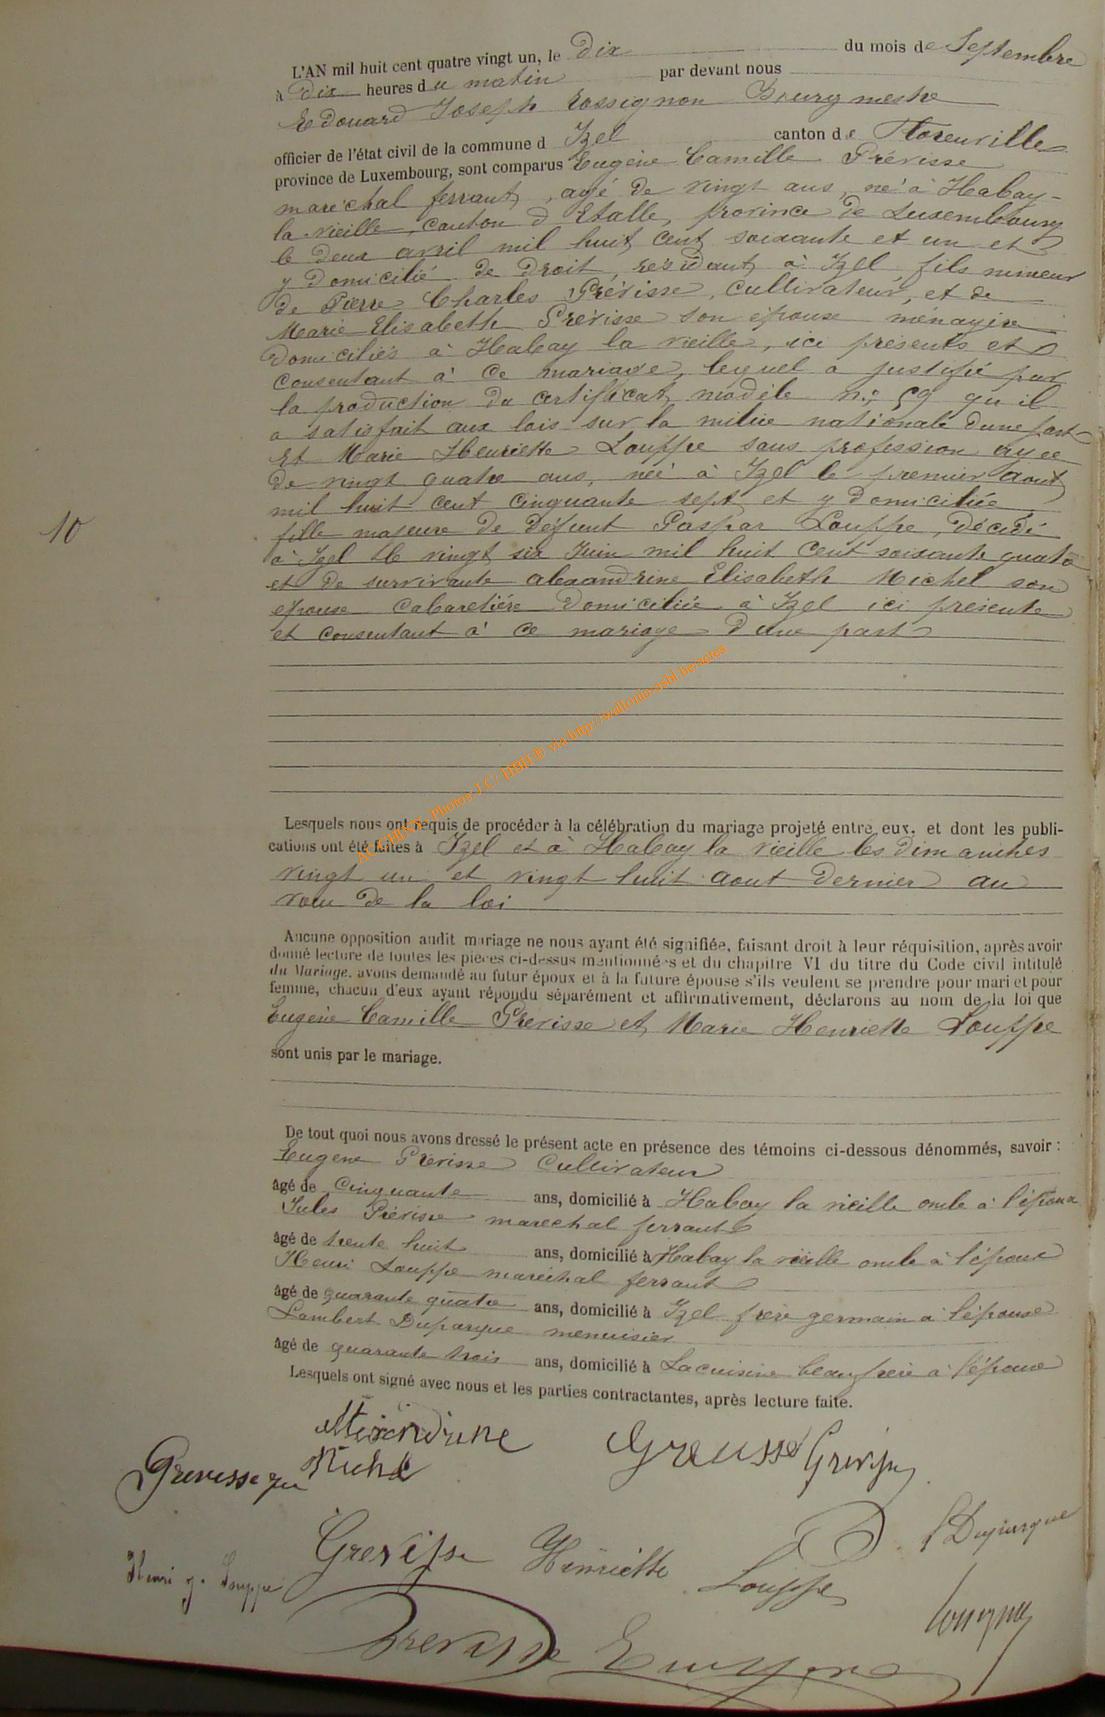 L'AN mil huit cent quatre vingt un, le Dix du mois de Septembre
à Dix heures du matin par devant nous
Edouard Joseph Rossignon Bourgmestre
officier de l'état civil de la commune d Izel canton de Florenville
province de Luxembourg, sont comparus Eugène Camille Grévisse
maréchal ferrant, agé de vingt ans, né à Habay-
la vieille, canton d'Etalle, province de Luxembourg
le deux avril mil huit cent soixante et un et
y Domicilié de Droit, résidant à Izel, fils mineur
de Pierre Charles Grévisse, cultivateur, et de
Marie Elisabeth Grévisse son épouse ménagère
Domiciliés à Habay la vieille, ici présents et
consentant à ce mariage, lequel a justifié par
la production du certificat modèle n° 59 qu'il
a satisfait aux lois sur la milice nationale d'une part
Et Marie Henriette Louppe sans profession agée
de vingt quatre ans, née à Izel le premier aout
mil huit cent cinquante sept et y domiciliée
fille majeure de Défunt Gaspar Louppe, Décédé
à Izel le vingt six Juin mil huit cent soixante quatre
et de survivante alexandrine Elisabeth Michel son
épouse cabaretière Domiciliée à Izel ici présente
et consentant à ce mariage D'une part
10
ARCHIVES Photos J.C. HBH © via http://wallonia-asbl.be/actes
Lesquels nous ont requis de procéder à la célébration du mariage projeté entre eux, et dont les publi-
cations ont été faites à Izel et à Habay la vieille les dimanches
vingt un et vingt huit aout dernier au
vœu de la loi
Aucune opposition audit mariage ne nous ayant été signifiée, faisant droit à leur réquisition, après avoir
donné lecture de toutes les pièces ci-dessus mentionnées et du chapitre VI du titre du Code civil intitulé
du Mariage, avons demandé au futur époux et à la future épouse s'ils veulent se prendre pour mari et pour
femme, chacun d'eux ayant répondu séparément et affirmativement, déclarons au nom de la loi que
Eugène Camille Grévisse et Marie Henriette Louppe
sont unis par le mariage.
De tout quoi nous avons dressé le présent acte en présence des témoins ci-dessous dénommés, savoir :
Eugène Grévisse Cultivateur
âgé de Cinquante ans, domicilié à Habay la vieille oncle à l'époux
Jules Grévisse maréchal ferrant
âgé de trente huit ans, domicilié à Habay la vieille oncle à l'époux
Henri Louppe maréchal ferrant
âgé de quarante quatre ans, domicilié à Izel frère germain à l'épouse
Lambert Duparque menuisier
âgé de quarante trois ans, domicilié à Lacuisine beau frère à l'épouse
Lesquels ont signé avec nous et les parties contractantes, après lecture faite.
Alexandrine
Grevisse Grévisse
Michel
Grevisse
L Duparque
Grevisse Henriette Louppe
Henri J. Louppe
Rossignon
Grevisse Eugène